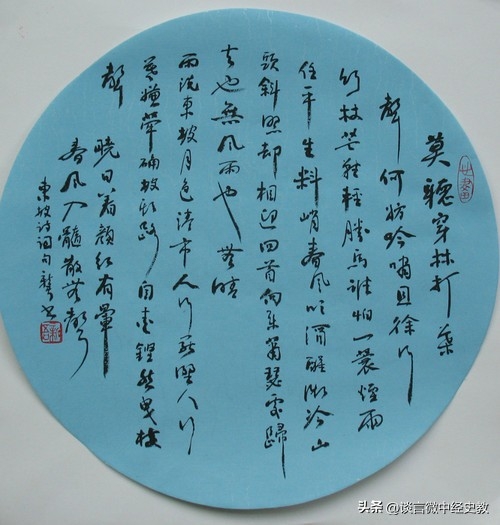 莫聽穿林打葉
聲何妨吟嘯且徐行
竹杖芒鞋輕勝馬誰怕一蓑煙雨
任平生料峭春風吹酒醒微冷山
頭斜照却相迎回首向來蕭瑟處歸
去也無風雨也無晴
雨洗東坡月色清市人行盡野人行
莫嫌犖确坡頭路自愛鏗然曳杖
聲
曉日著顏紅有暈
春風入髓散無聲
東坡詩詞句
头条 @谈言微中经史教